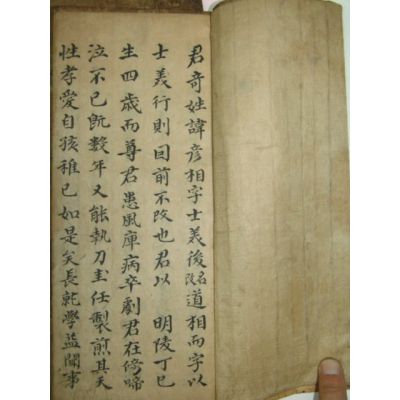 君奇姓諱彦相字士美後名改道相而字以
士美行則因前不改也君以 明陵丁巳
生四歲而尊君患風庳病卒劇君在傍啼
泣不已旣数年又能執刀圭任製煎其天
性孝愛自孩稚已如是矣長就學益聞事